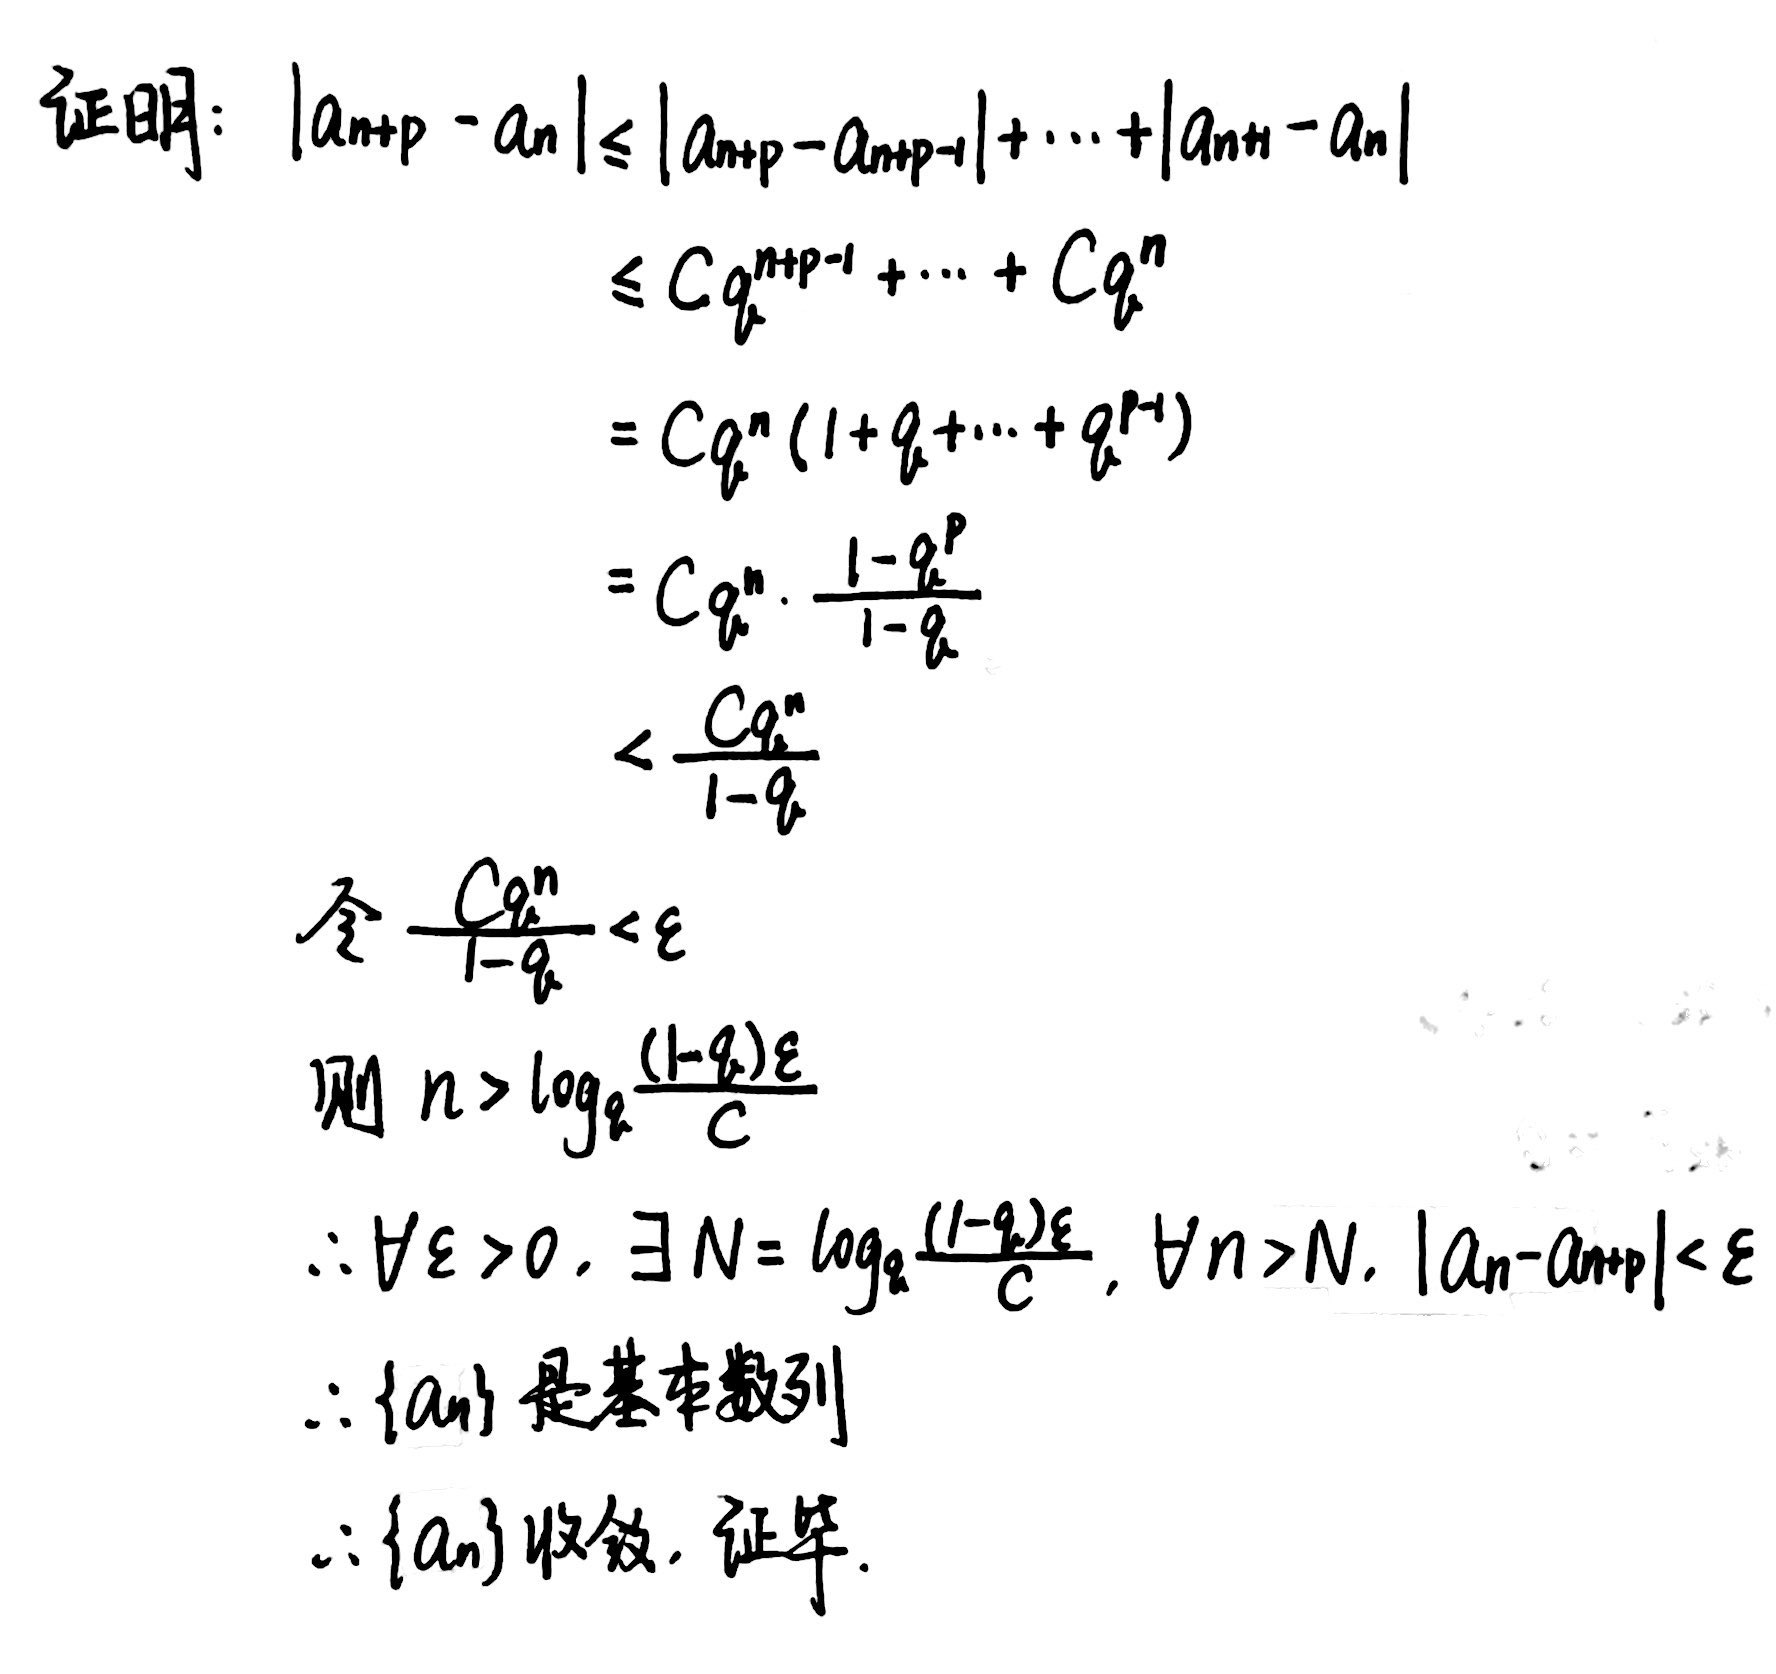 证明: |aₙ₊ₚ - aₙ| ≤ |aₙ₊ₚ - aₙ₊ₚ₋₁| + ⋯ + |aₙ₊₁ - aₙ|
≤ Cq^{n+p-1} + ⋯ + Cq^n
= Cq^n (1 + q + ⋯ + q^{p-1})
= Cq^n · \frac{1-q^p}{1-q}
< \frac{Cq^n}{1-q}
令 \frac{Cq^n}{1-q} < ε
则 n > log_q \frac{(1-q)ε}{C}
∴ ∀ε > 0, ∃N = log_q \frac{(1-q)ε}{C}, ∀n > N, |aₙ - aₙ₊ₚ| < ε
∴ {aₙ} 是基本数列
∴ {aₙ} 收敛, 证毕.